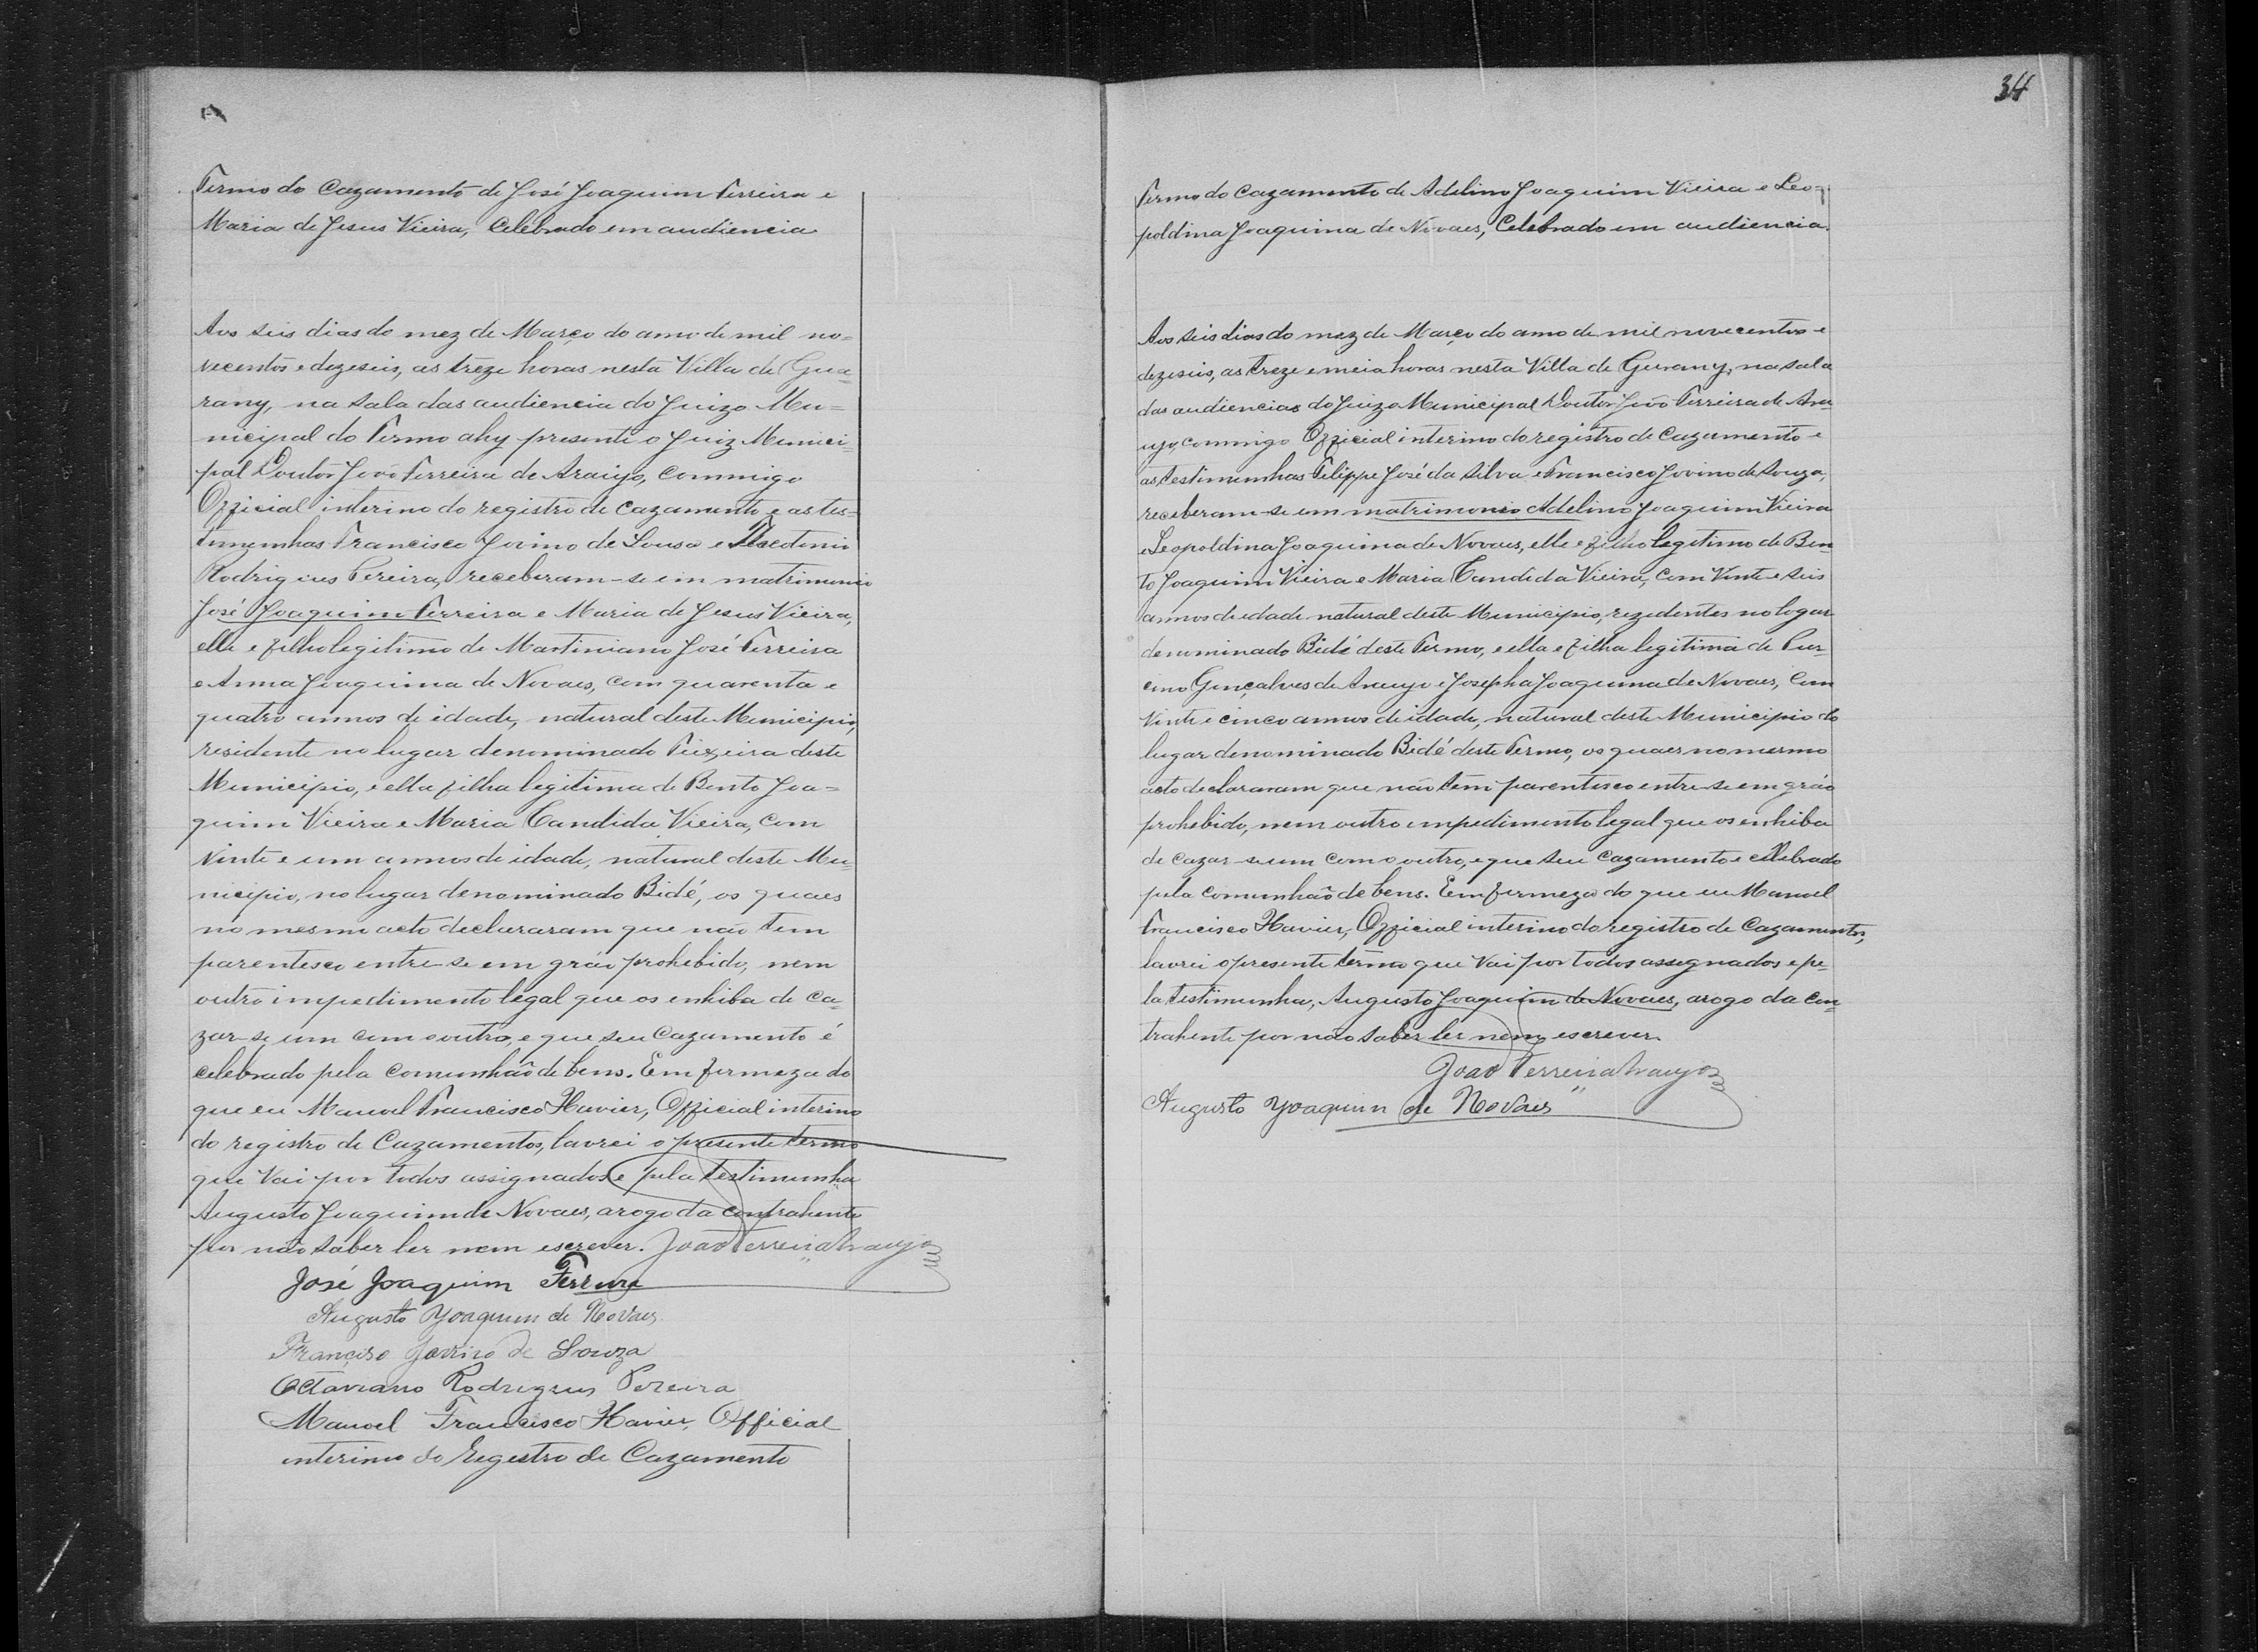 Termo do Cazamento de José Joaquim Ferreira e
Maria de Jesus Vieira, Celebrado em audiencia
Aos seis dias do mez de Março do anno de mil no=
vecentos e dezeseis, as treze horas nesta Villa de Gua=
rany, na sala das audiencia do Juizo Mu=
nicipal do Termo ahy presente o Juiz Munici-
pal Doutor João Ferreira de Araujo, commigo
Official interino do registro de Cazamento e as tes-
timunhas Francisco Jovino de Sousa e
Rodrigues Pereira, receberam-se em matrimonio
José Joaquim Ferreira e Maria de Jesus Vieira,
elle e filho legitimo de Martiniano José Ferreira
e Anna Joaquina de Novaes, com quarenta e
quatro annos de idade, natural deste Municipio,
residente no lugar denominado Teixeira deste
Municipio, e ella filha legitima de Bento Joa=
quim Vieira e Maria Candida Vieira, com
vinte e um annos de idade, natural deste Mu-
nicipio, no lugar denominado Bidé, os quaes
no mesmo acto declararam que não tem
parentesco entre se em gráo prohebido, nem
outro impedimento legal que os enhiba de ca-
zar-se um com o outro, e que seu Cazamento é
celebrado pela Comunhão de bens. Em firmeza do
que eu Manoel Francisco Xavier, Official interino
do registro de Cazamentos, lavrei o presente termo
que vai por todos assignados e pela testimunha
Augusto Joaquim de Novaes, arogo da contrahente
por não saber ler nem escrever. João Ferreira Araujo
José Joaquim Ferreira
Augusto Joaquim de Novaes
Francisco Jovino de Souza
Octaviano Rodrigues Pereira
Manoel Francisco Xavier, Official
interino do Registro de Cazamento
34
Termo do Cazamento de Adelino Joaquim Vieira e Leo-
poldina Joaquina de Novaes, Celebrado em audiencia.
Aos seis dias do mez de Março do anno de mil novecentos e
dezeseis, as treze e meia horas nesta Villa de Gurany, na sala
das audiencias do Juizo Municipal Doutor João Ferreira de Ara-
ujo, commigo Official interino do registro de Cazamento e
as testimunhas Filippe José da Silva e Francisco Jovino de Souza,
receberam-se em matrimonio Adelino Joaquim Vieira
e Leopoldina Joaquina de Novaes, elle e filho legitimo de Ben-
to Joaquim Vieira e Maria Candida Vieira, com vinte e seis
annos de idade natural deste Municipio, rezedentes no logar
denominado Bidé deste Termo, e ella e filha legitima de
Gonçalves de Araujo e Josepha Joaquina de Novaes, com
vinte e cinco annos de idade, natural deste Municipio do
lugar denominado Bidé deste Termo, os quaes no mesmo
acto declararam que não tem parentesco entre se em gráo
prohebido, nem outro empedimento legal que os enhiba
de cazar-se um com o outro, e que seu Cazamento e cellebrado
pela Comunhão de bens. Em firmeza do que eu Manoel
Francisco Xavier, Official interino do registro de Cazamentos,
lavrei o presente termo que vai por todos assegnados e pe-
la testimunha, Augusto Joaquim de Novaes, arogo da con-
trahente por não saber ler nem escrever.
João Ferreira Araujo
Augusto Joaquim de Novaes